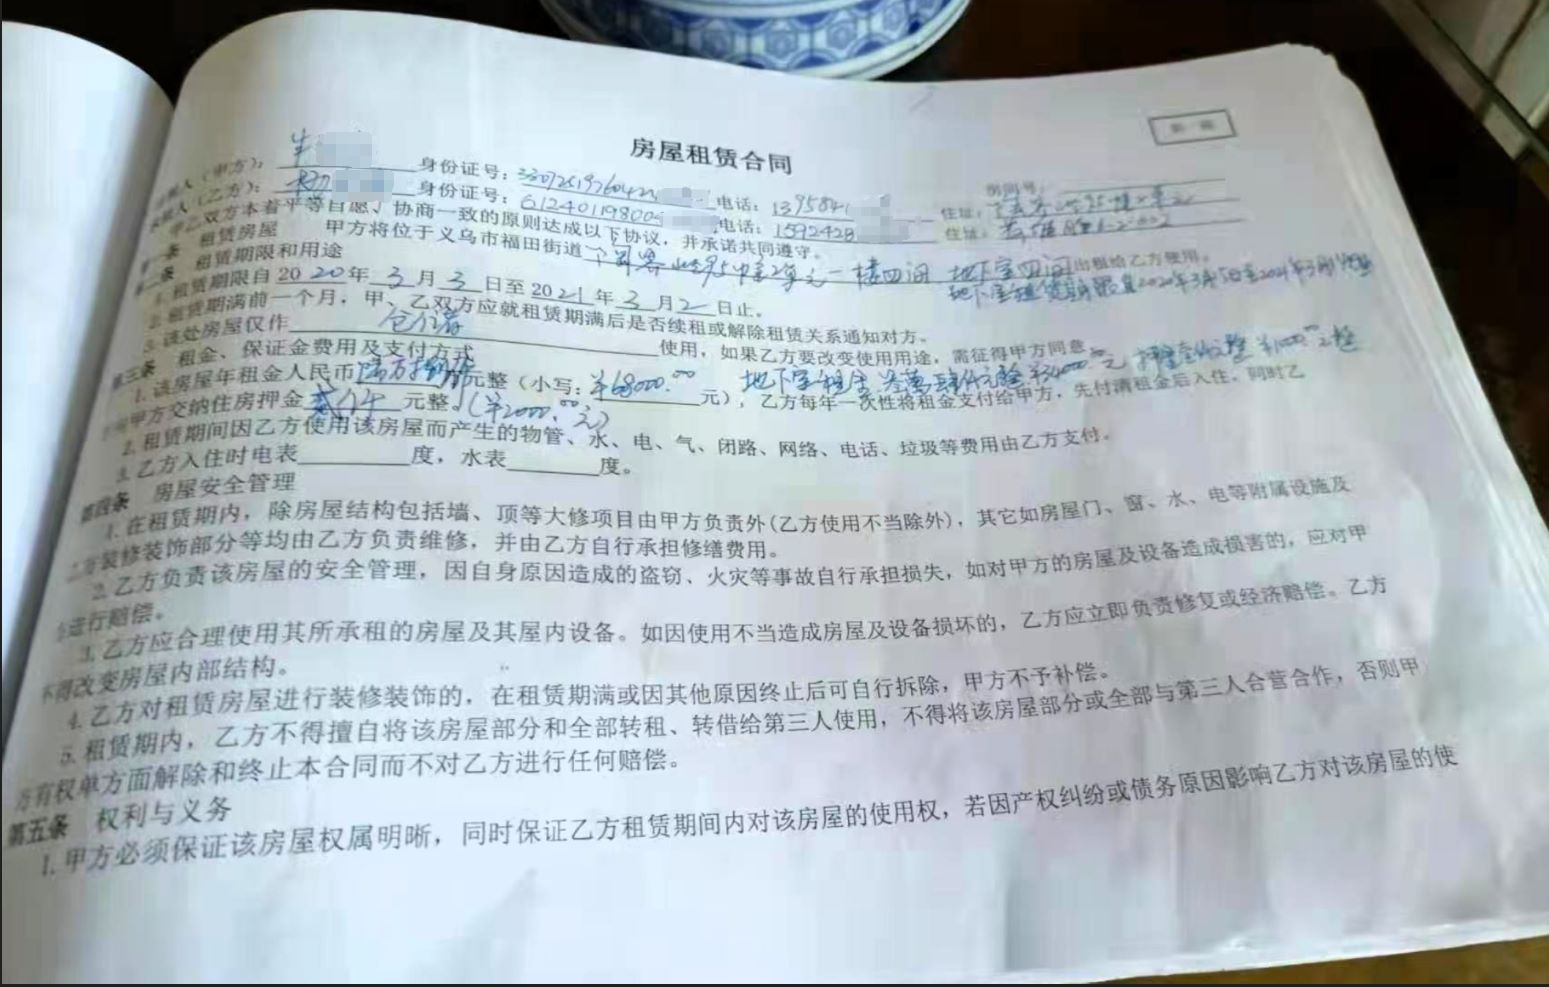 房屋租赁合同
人（甲方）： 身份证号： 电话：1395841 住址：
人（乙方）： 身份证号：612401198009 电话：1592428 住址：
甲乙双方本着平等自愿、协商一致的原则达成以下协议，并承诺共同遵守。
第一条 租赁房屋 甲方将位于义乌市福田街道 一楼四间 地下室四间 出租给乙方使用。
第二条 租赁期限和用途
1. 租赁期限自 2020 年 3 月 3 日至 2021 年 3 月 2 日止。
2. 租赁期满前一个月，甲、乙双方应就租赁期满后是否续租或解除租赁关系通知对方。
3. 该处房屋仅作 仓储 使用，如果乙方要改变使用用途，需征得甲方同意。
第三条 租金、保证金费用及支付方式
1. 该房屋年租金人民币 元整（小写：¥68000.00 元），乙方每年一次性将租金支付给甲方，先付清租金后入住。同时乙
向甲方交纳住房押金 贰仟 元整。（¥2000.00元）
2. 租赁期间因乙方使用该房屋而产生的物管、水、电、气、闭路、网络、电话、垃圾等费用由乙方支付。
3. 乙方入住时电表 度，水表 度。
第四条 房屋安全管理
1. 在租赁期内，除房屋结构包括墙、顶等大修项目由甲方负责外(乙方使用不当除外)，其它如房屋门、窗、水、电等附属设施及
方装修装饰部分等均由乙方负责维修，并由乙方自行承担修缮费用。
2. 乙方负责该房屋的安全管理，因自身原因造成的盗窃、火灾等事故自行承担损失，如对甲方的房屋及设备造成损害的，应对甲
进行赔偿。
3. 乙方应合理使用其所承租的房屋及其屋内设备。如因使用不当造成房屋及设备损坏的，乙方应立即负责修复或经济赔偿。乙方
不得改变房屋内部结构。
4. 乙方对租赁房屋进行装修装饰的，在租赁期满或因其他原因终止后可自行拆除，甲方不予补偿。
5. 租赁期内，乙方不得擅自将该房屋部分和全部转租、转借给第三人使用，不得将该房屋部分或全部与第三人合营合作，否则甲
方有权单方面解除和终止本合同而不对乙方进行任何赔偿。
第五条 权利与义务
1. 甲方必须保证该房屋权属明晰，同时保证乙方租赁期间内对该房屋的使用权，若因产权纠纷或债务原因影响乙方对该房屋的使